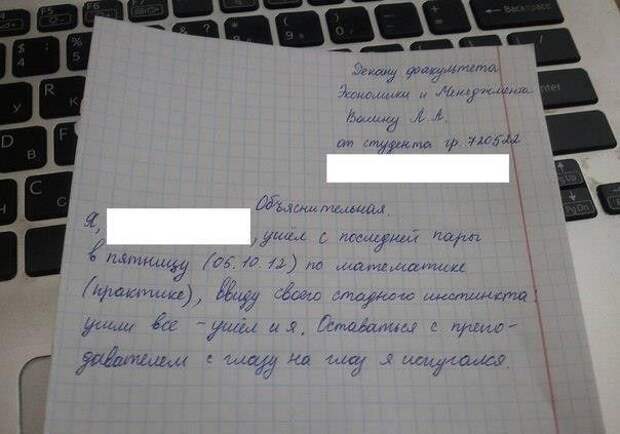 Декану факультета
Экономики и Менеджмента
Волину Л. А.
от студента гр. 720522
Объяснительная.
Я, , ушёл с последней пары
в пятницу (05.10.12) по математике
(практике), ввиду своего стадного инстинкта:
ушли все - ушёл и я. Оставаться с препо-
давателем с глазу на глаз я испугался.
Backspace
Enter
PgUp
PgDn